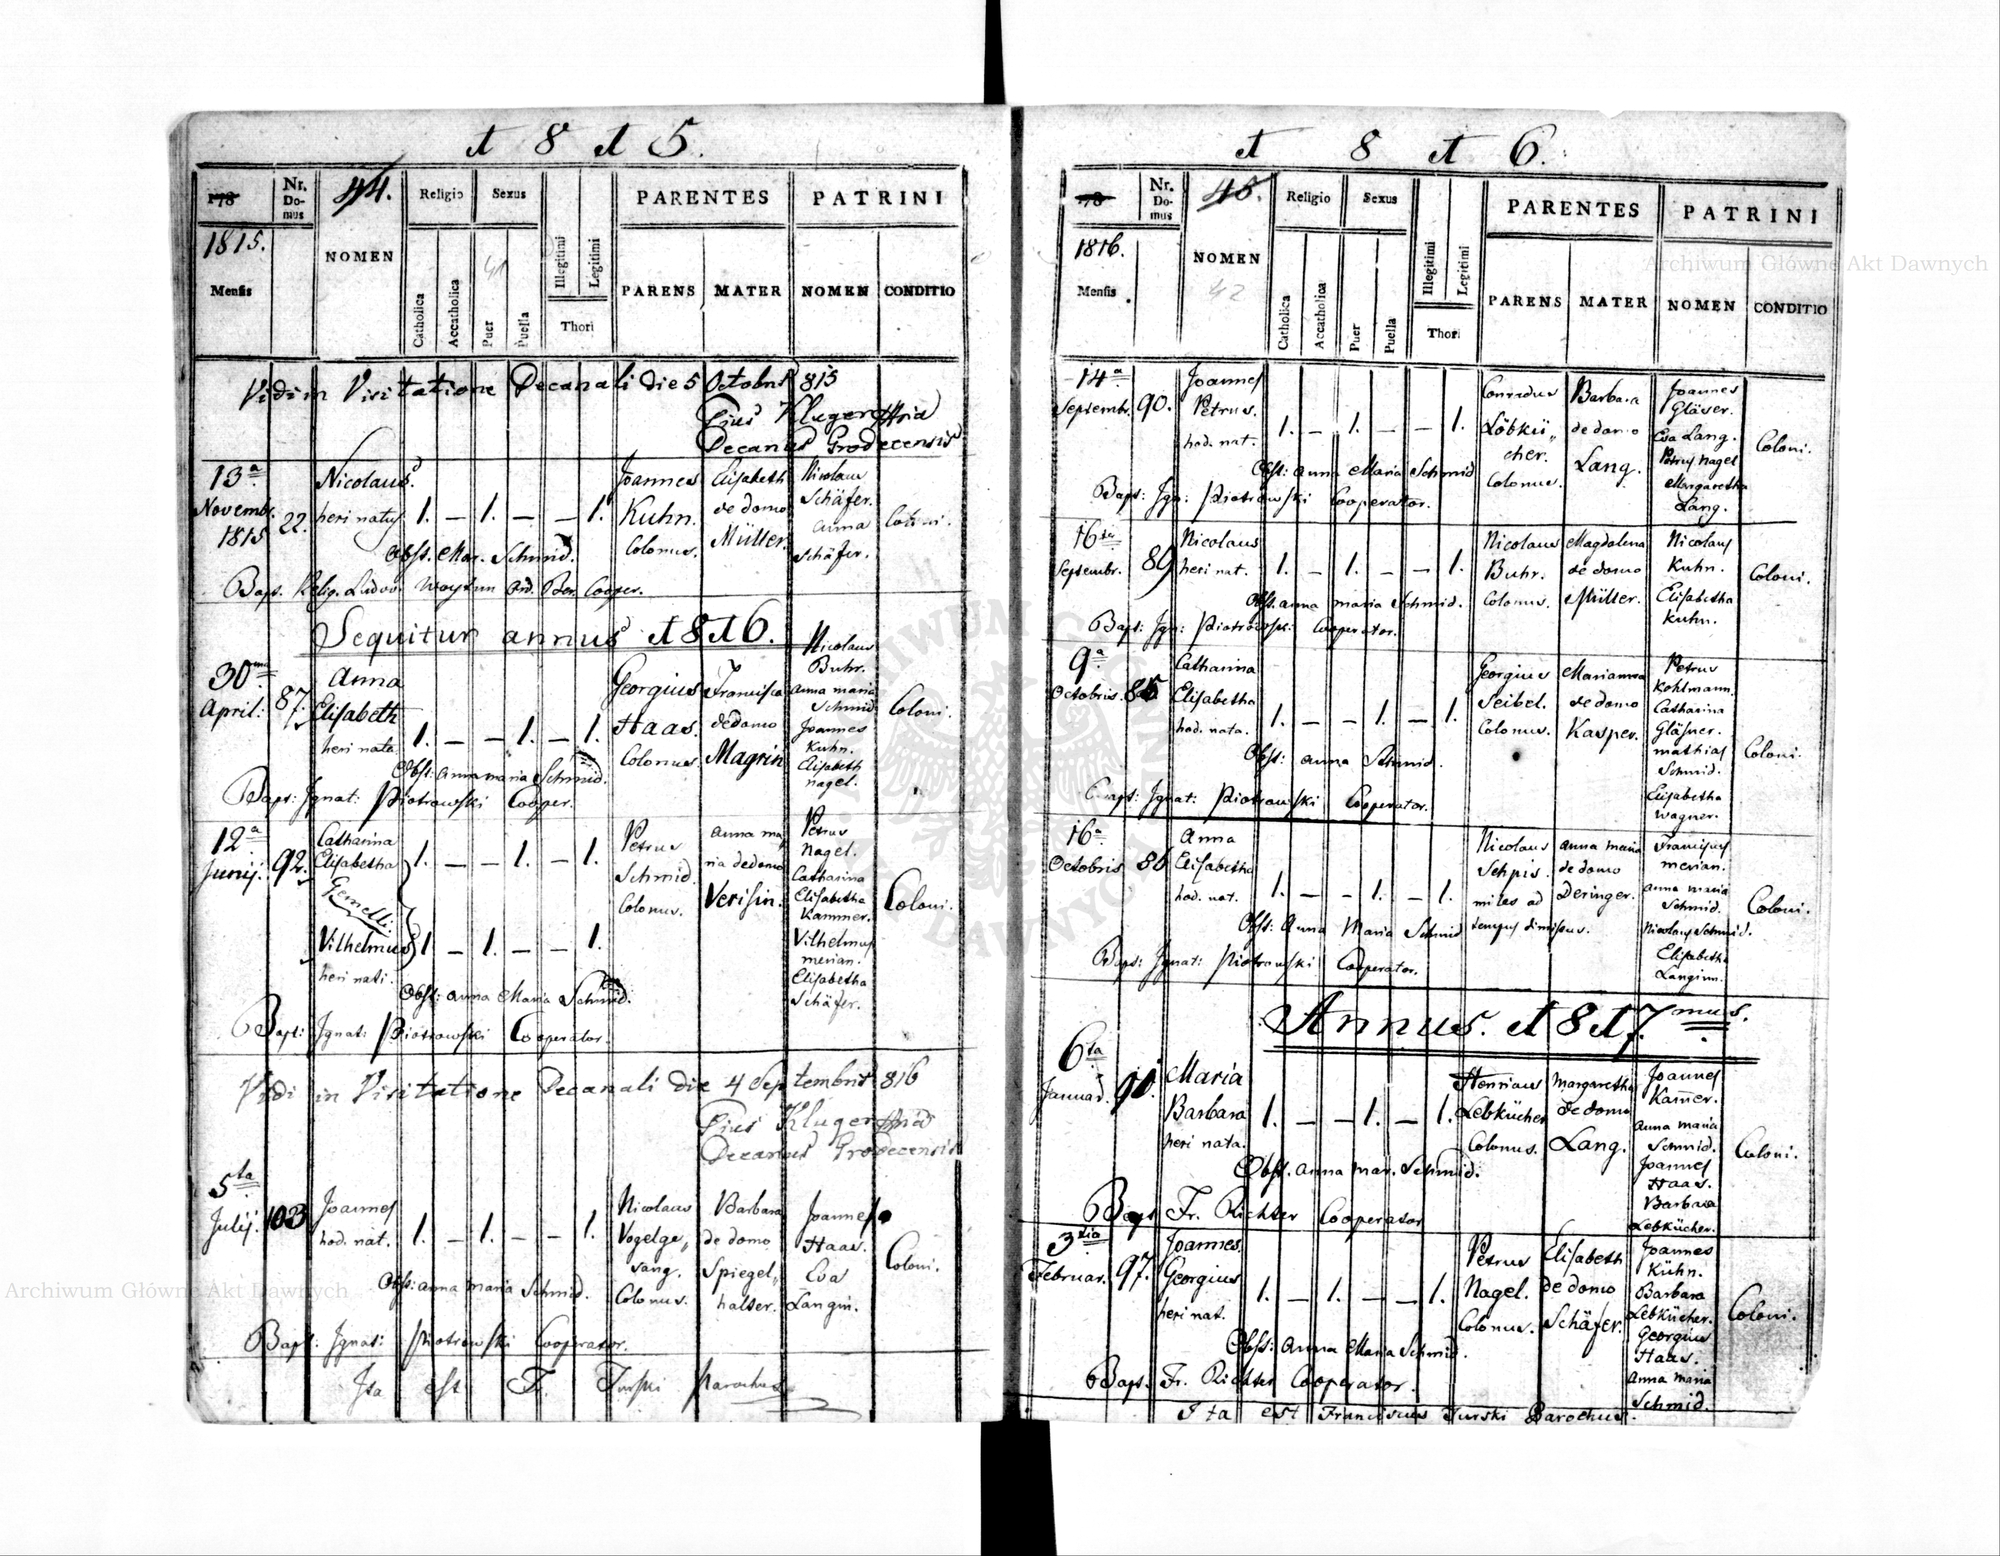 1815.
178
Nr. Do- mus
44.
Religio
Sexus
PARENTES
PATRINI
1815.
Mensis
NOMEN
41
Catholica
Accatholica
Puer
Puella
Illegitimi
Legitimi
Thori
PARENS
MATER
NOMEN
CONDITIO
Vidi in Visitatione Decanali die 5 Octobris 815
Pius Kluger
Decanus Grodecensis
13a Novembr. 1815
22.
Nicolaus heri natus
1. — 1. — — 1.
Joannes Kuhn. Colonus.
Elisabeth de domo Müller.
Nicolaus Schäfer. Anna Schäfer.
Coloni.
Obst. Mar. Schmid.
Bapt. Relig. Ludov. Woytun Ord. Ber. Cooper.
Sequitur annus 1816.
30ma April:
87.
Anna Elisabeth heri nata
1. — — 1. — 1.
Georgius Haas. Colonus
Francisca de domo Magrin
Nicolaus Buhr. Anna Maria Schmid Joannes Kuhn. Elisabeth Nagel.
Coloni.
Obst: Anna Maria Schmid.
Bapt: Ignat: Piotrowski Cooper.
12a Junij.
92.
Catharina Elisabetha
1. — — 1. — 1.
Gemelli.
Vilhelmus heri nati.
1 — 1. — — 1.
Petrus Schmid. Colonus.
Anna Maria de domo Verisin.
Petrus Nagel. Catharina Elisabetha Kammer. Vilhelmus Merian. Elisabetha Schäfer.
Coloni.
Obst: Anna Maria Schmid.
Bapt: Ignat: Piotrowski Cooperator.
Vidi in Visitatione Decanali die 4 Septembris 816
Pius Kluger
Decanus Grodecensis
5ta Julij.
103
Joannes hod. nat.
1. — 1. — — 1.
Nicolaus Vogelge„ sang. Colonus.
Barbara de domo Spiegel„ halter.
Joannes Haas. Eva Langin.
Coloni.
Obst: Anna Maria Schmid.
Bapt: Ignat: Piotrowski Cooperator.
Ita est Fr. Turski Parochus
1816.
178
Nr. Do- mus
45.
Religio
Sexus
PARENTES
PATRINI
1816.
Mensis
NOMEN
42
Catholica
Accatholica
Puer
Puella
Illegitimi
Legitimi
Thori
PARENS
MATER
NOMEN
CONDITIO
14a Septembr.
90.
Joannes Petrus. hod. nat.
1. — 1. — — 1.
Conradus Löbkü„ cher. Colonus.
Barbara de domo Lang.
Joannes Gläser. Eva Lang. Petrus Nagel Margaretha Lang.
Coloni.
Obst: Anna Maria Schmid
Bapt: Ign: Piotrowski Cooperator.
16ta Septembr.
89
Nicolaus heri nat.
1. — 1. — — 1.
Nicolaus Buhr. Colonus.
Magdalena de domo Müller.
Nicolaus Kuhn. Elisabetha Kuhn.
Coloni.
Obst. Anna Maria Schmid.
Bapt: Ign: Piotrowski Cooperator.
9a Octobris.
85
Catharina Elisabetha hod. nata.
1. — — 1. — 1.
Georgius Seibel. Colonus.
Marianna de domo Kasper.
Petrus Kohlmann. Catharina Gläsner. Mathias Schmid. Elisabetha Wagner.
Coloni.
Obst: Anna Schmid.
Bapt: Ignat: Piotrowski Cooperator.
16a Octobris
86
Anna Elisabetha hod. nat.
1. — — 1. — 1.
Nicolaus Schpis. miles ad tempus dimissus.
Anna Maria de domo Deringer.
Franciscus Merian. Anna Maria Schmid. Nicolaus Schmid. Elisabetha Langinn.
Coloni.
Obst: Anna Maria Schmid
Bapt: Ignat: Piotrowski Cooperator.
Annus. 1817.mus.
6ta Januar.
90.
Maria Barbara heri nata.
1. — — 1. — 1.
Henricus Lebkücher Colonus.
Margaretha de domo Lang.
Joannes Kam̄er. Anna Maria Schmid. Joannes Haas. Barbara Lebkücher.
Coloni.
Obst. Anna Mar. Schmid.
Bapt Fr. Richter Cooperator
3tia Februar.
97.
Joannes Georgius heri nat.
1. — 1. — — 1.
Petrus Nagel. Colonus.
Elisabeth de domo Schäfer.
Joannes Kühn. Barbara Lebkücher. Georgius Haas. Anna Maria Schmid.
Coloni.
Obst: Anna Maria Schmid.
Bapt. Fr. Richter Cooperator.
Ita est Franciscus Turski Parochus.
Archiwum Główne Akt Dawnych
Archiwum Główne Akt Dawnych
ARCHIWUM GŁÓWNE AKT DAWNYCH